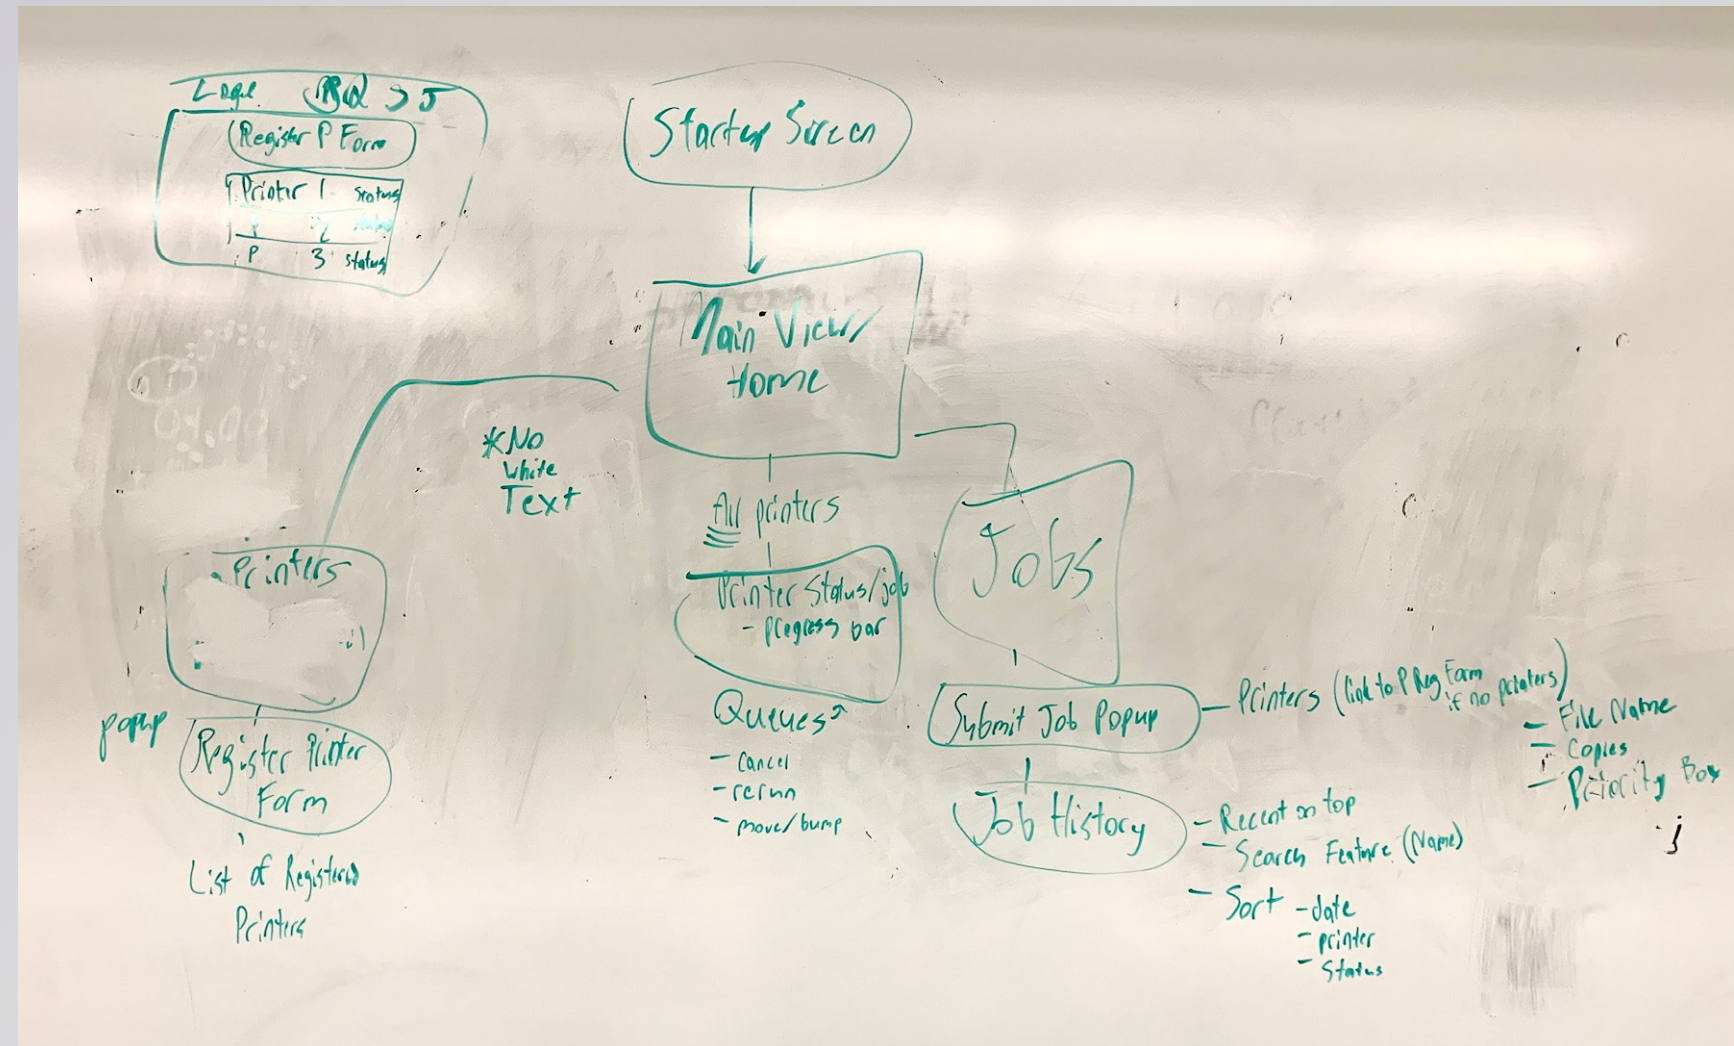 Register P Form
Printer 1 status
2
P 3 status
Startup Screen
Main View/
Home
*No
white
Text
All printers
Printers
Printer Status/job
- progress bar
Jobs
popup
Register Printer
Form
List of Registered
Printers
Queues
- cancel
- rerun
- move/bump
Submit Job Popup
- Printers (link to P Reg Form
if no printers)
- File Name
- Copies
- Priority Box
Job History
- Recent on top
- Search Feature (Name)
- Sort - date
- printer
- status